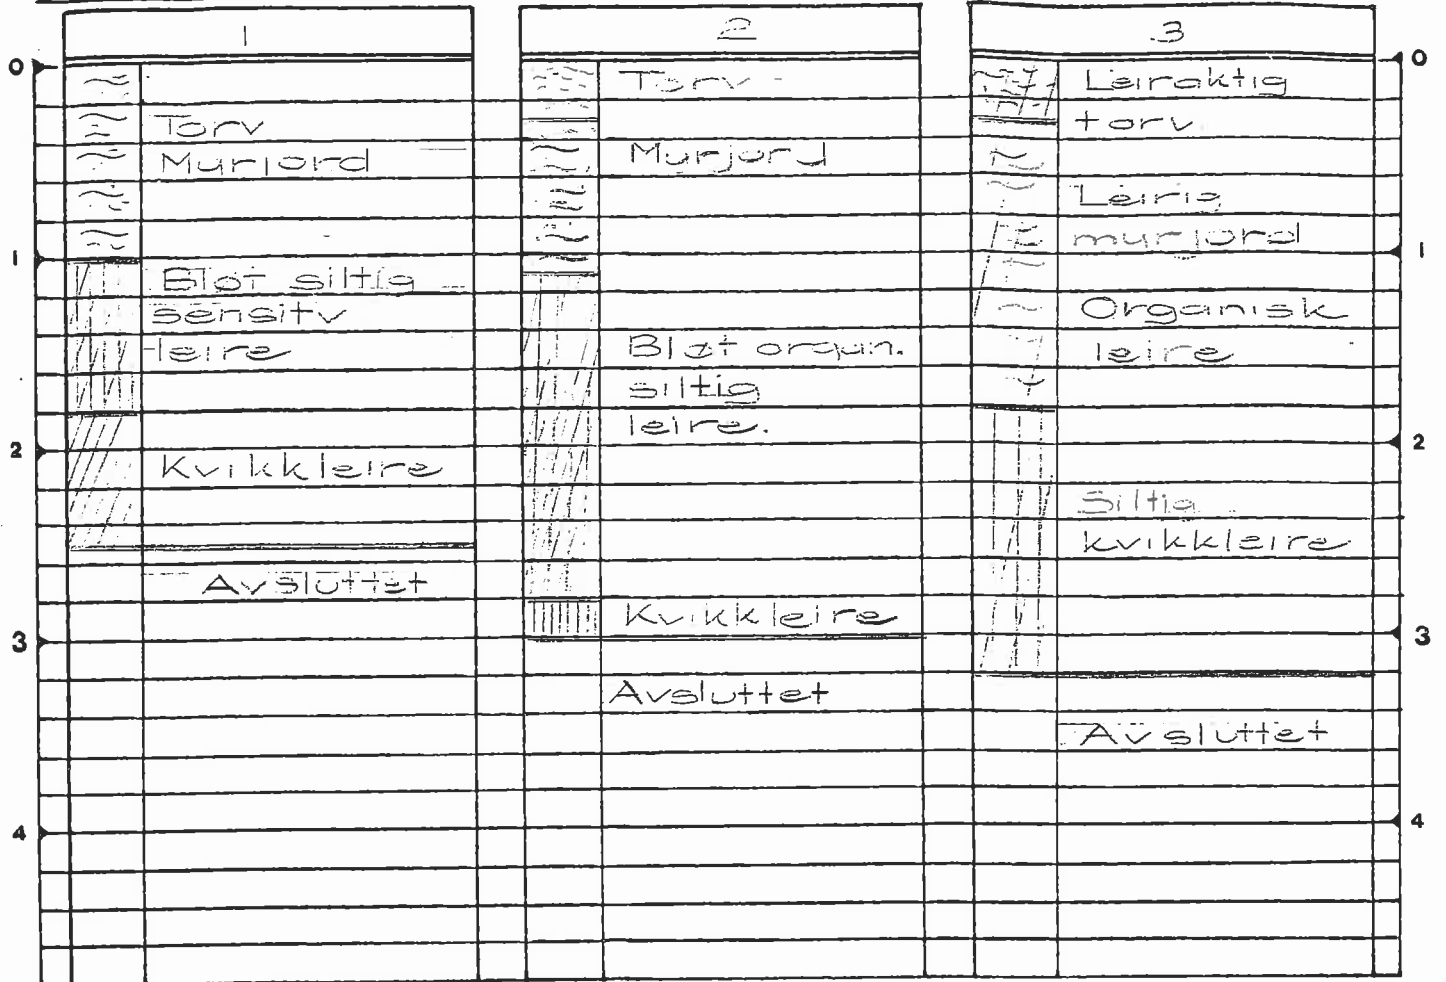 1
2
3
0
1
2
3
4
Torv
Murjord
Bløt siltig
sensitv
leire
Kvikkleire
Avsluttet
Torv
Murjord
Bløt organ.
siltig
leire.
Kvikkleire
Avsluttet
Leiraktig
torv
Leirig
murjord
Organisk
leire
Siltig
kvikkleire
Avsluttet
0
1
2
3
4